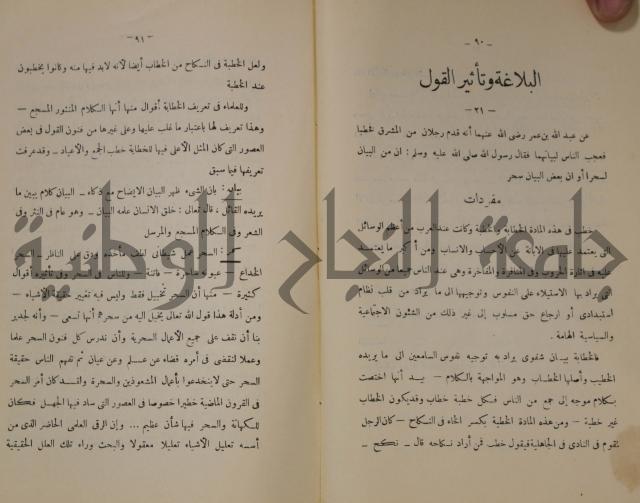 - ٩٠ -
البلاغة وتأثير القول
- ٢١ -
عن عبد الله بن عمر رضى الله عنهما أنه قدم رجلان من المشرق فخطبا
فعجب الناس لبيانهما فقال رسول الله صلى الله عليه وسلم : ان من البيان
لسحرا أو ان بعض البيان سحر
مفردات
خطب فى هذه المادة الخطابة والخطبة وكانت عند العرب من أعظم الوسائل
التى يعتمد عليها فى الابانة عن الأحساب والانساب ومن أكبر ما يعتمد
عليه فى اثارة الحروب وفى المنافرة والمفاخرة وهى عند الناس جميعا من الوسائل
التى يراد بها الاستيلاء على النفوس وتوجيهها الى ما يراد من قلب نظام
استبدادى أو ارجاع حق مسلوب إلى غير ذلك من الشئون الاجتماعية
والسياسية الهامة .
فالخطابة بيان شفوى يراد به توجيه نفوس السامعين الى ما يريده
الخطيب وأصلها الخطاب وهو المواجهة بالكلام — بيد أنها اختصت
بكلام موجه إلى جمع من الناس فكل خطبة خطاب وقد يكون الخطاب
غير خطبة — ومن هذه المادة الخطبة بكسر الخاء فى النكاح — كان الرجل
يقوم فى النادى فى الجاهلية فيقول خطب فمن أراد نكاحه قال — نكح —
- ٩١ -
ولعل الخطبة فى النكاح من الخطاب أيضا لأنه لابد فيها منه وكانوا يخطبون
عند الخطبة
وللعلماء فى تعريف الخطابة أقوال منها أنها الكلام المنثور المسجع —
وهذا تعريف لها باعتبار ما غلب عليها وعلى غيرها من فنون القول فى بعض
العصور التى كان المثل الأعلى فيها للخطابة خطب الجمع والأعياد — وقد عرفت
تعريفها فيما سبق
بيانه : بان الشىء ظهر البيان الايضاح مع ذكاء — البيان كلام يبين ما
يريده القائل ، قال تعالى : خلق الانسان علمه البيان — وهو عام فى النثر وفى
الشعر وفى الكلام المسجع والمرسل
سحر : السحر عمل شيطانى لطف مأخذه ودق على الناظر — السحر
الخداع — عيونه ساحرة — فاتنة — وللناس فى السحر وفى تأثيره أقوال
كثيرة — منها أن السحر تخييل فقط وليس فيه تغيير حقيقة الأشياء —
ومن أدلة هذا قول الله تعالى يخيل اليه من سحرهم أنها تسعى — وأنه لجدير
بنا أن نقف على جميع الأعمال السحرية وأن ندرس كل فنون السحر علما
وعملا لنقضى فى أمره قضاء عن علم وعن عيان ثم نفهم الناس حقيقة
السحر حتى لا ينخدعوا بأعمال المشعوذين والسحرة ولقد كان أمر السحر
فى القرون الماضية خطيرا خصوصا فى العصور التى ساد فيها الجهل فكان
للكهانة والسحر فيها شأن عظيم ... وإن الرقى العلمى الحاضر الذى من
أسسه تعليل الأشياء تعليلا معقولا والبحث وراء تلك العلل الحقيقية
جامعة النجاح الوطنية